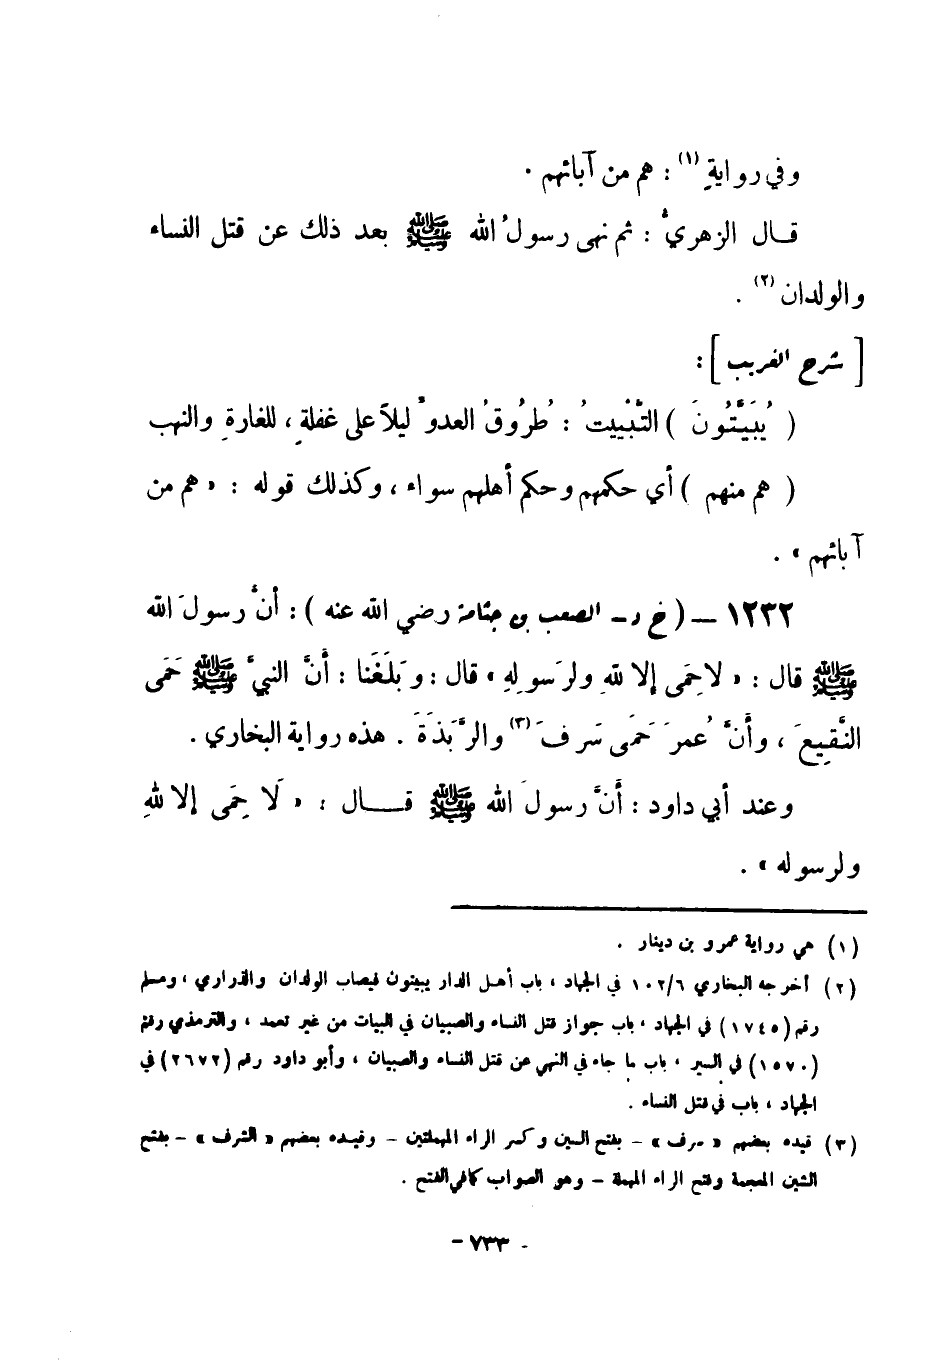 وفي روايةٍ (١) : هم من آبائهم .
قـال الزهريُّ : ثم نهى رسولُ الله ﷺ بعد ذلك عن قتل النساء
والولدان (٢) .
[ شرح الغريب ] :
( يُبَيَّتُونَ ) التَّبْيِيتُ : طُرُوقُ العدوِّ ليلاً على غفلةٍ ، للغارةِ والنهب
( هم منهم ) أي حكمهم وحكم أهلهم سواء ، وكذلك قوله : « هم من
آبائهم » .
١٢٣٢ – ( خ د – الصعب بن جثامة رضي الله عنه ) : أنَّ رسولَ الله
ﷺ قال : « لا حِمَى إلا لله ولرَسولِهِ » قال : وبَلَغَنا : أَنَّ النبيَّ ﷺ حَمَى
النَّقِيعَ ، وأَنَّ عُمرَ حَمَى سَرفَ (٣) والرَّبَذَةَ . هذه رواية البخاري .
وعند أبي داود : أَنَّ رسولَ الله ﷺ قــال : « لَا حِمَى إلا للهِ
ولرسوله » .
(١) هي رواية عمرو بن دينار .
(٢) أخرجه البخاري ١٠٢/٦ في الجهاد ، باب أهل الدار يبيتون فيصاب الولدان والذراري ، ومسلم
رقم (١٧٤٥) في الجهاد ، باب جواز قتل النساء والصبيان في البيات من غير تعمد ، والترمذي رقم
(١٥٧٠) في السير ، باب ما جاء في النهي عن قتل النساء والصبيان ، وأبو داود رقم (٢٦٧٢) في
الجهاد ، باب في قتل النساء .
(٣) قيده بعضهم « سرف » – بفتح السين وكسر الراء المهملتين – وقيده بعضهم « الشرف » – بفتح
الشين المعجمة وفتح الراء المهملة – وهو الصواب كما في الفتح .
- ٧٣٣ -